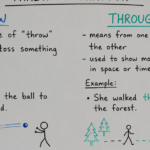 W
e of "throw"
toss something
the ball to
d.
THROUG
- means from one
the other
- used to show mo
in space or time
Example:
• She walked th
the forest.